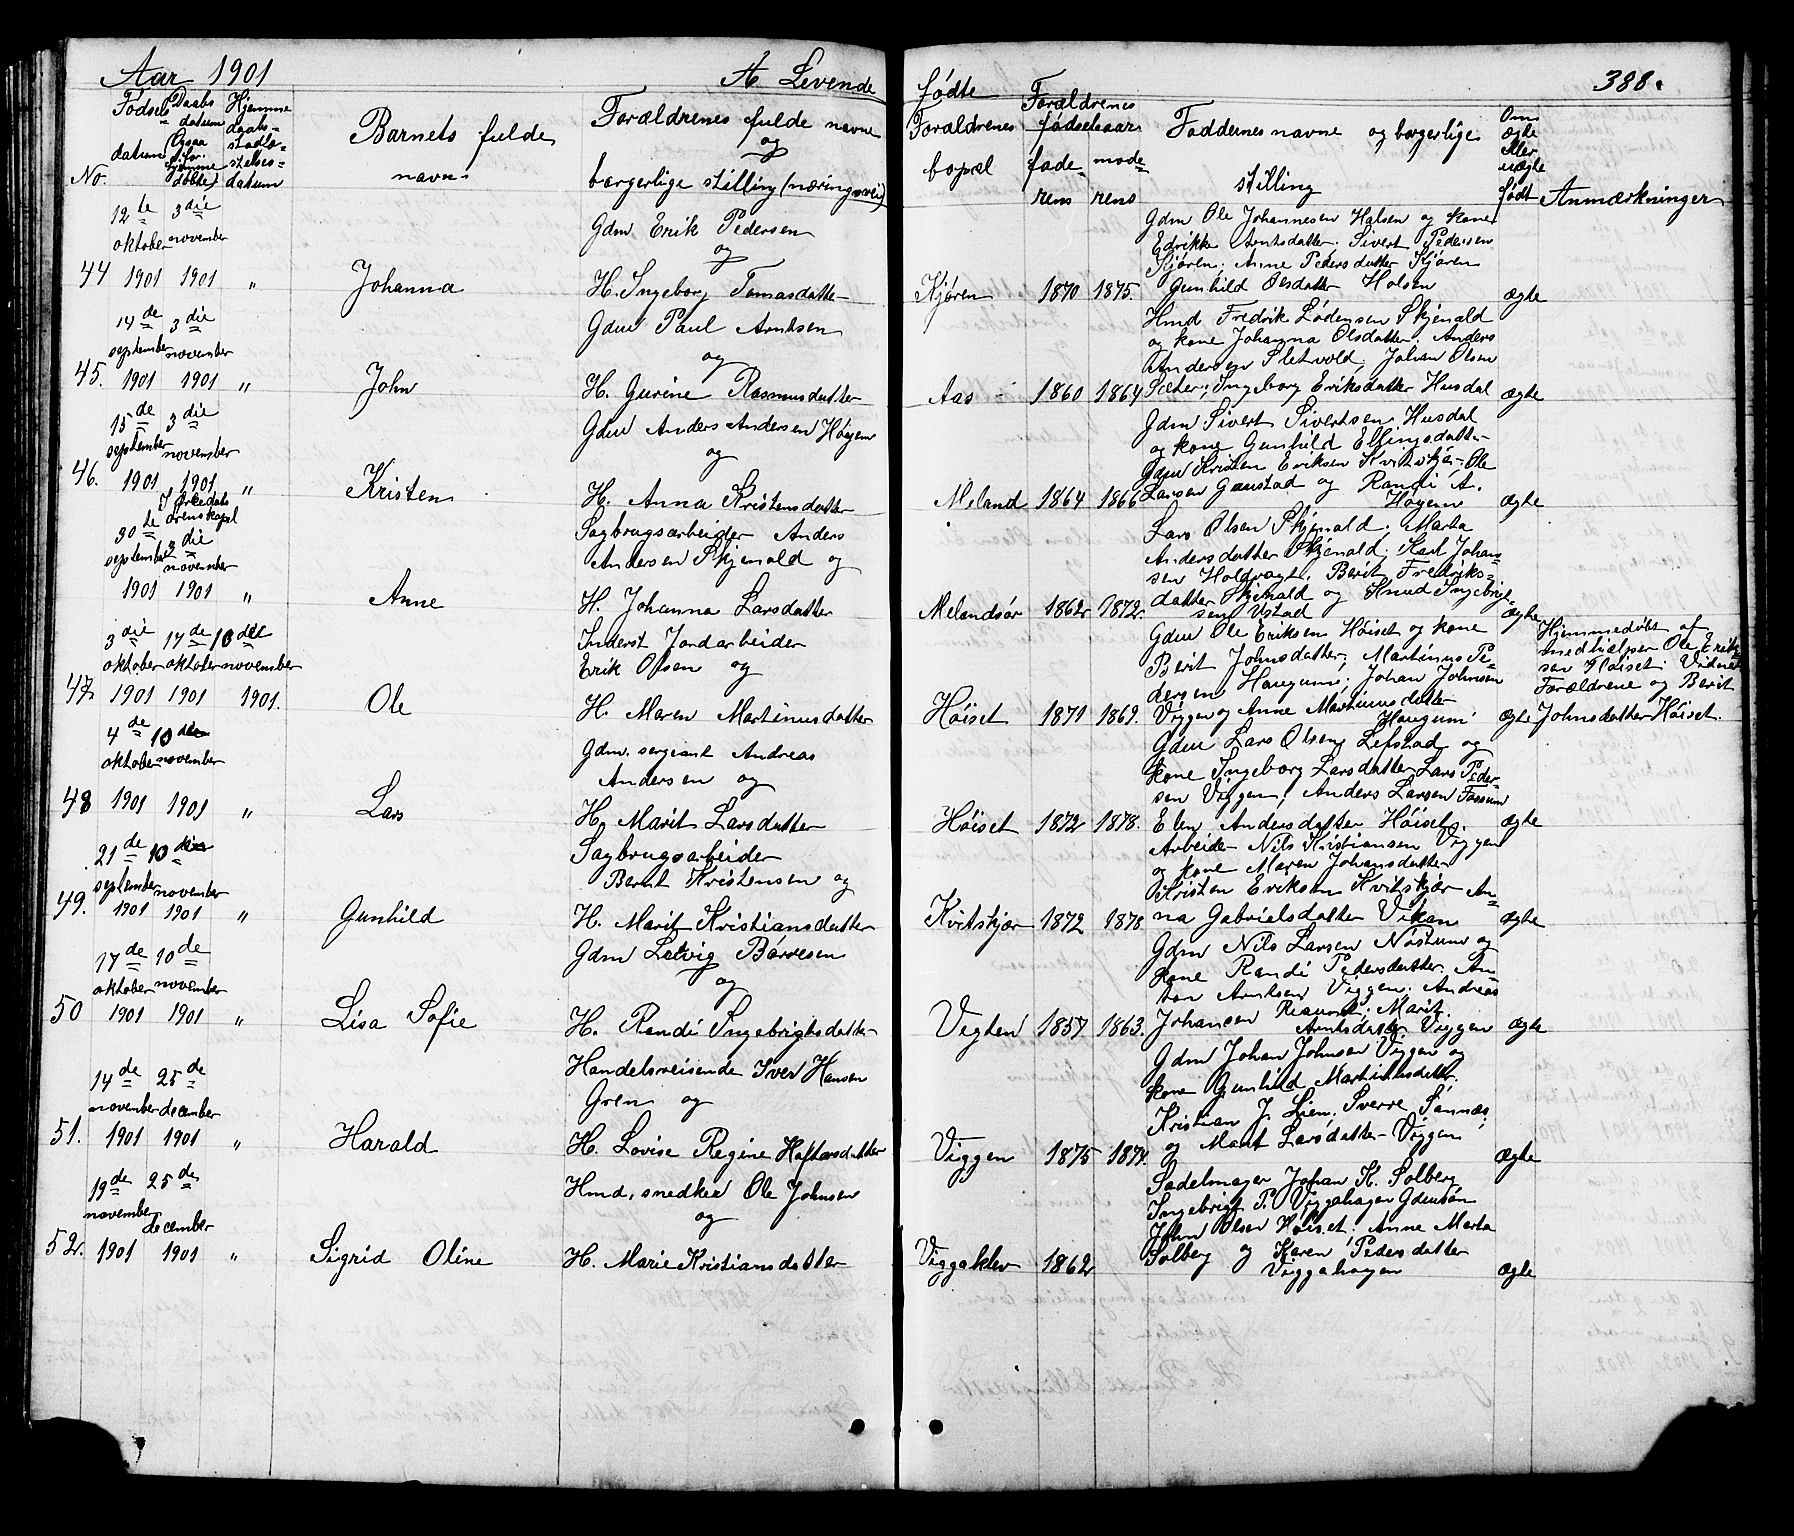 Aar 1901
A Levende
fødte
388.
No.
Fødsels datum
Daabs datum (Ogsaa for hjemme døbte)
Hjemme daabs- stadfæ- stelses- datum
Barnets fulde navn
Forældrenes fulde navne og borgerlige stilling (næringsvei)
Forældrenes bopæl
Forældrenes fødselsaar faderens moderens
Faddernes navne og borgerlige stilling
Om ægte eller uægte født
Anmærkninger
12te 3die
oktober november
44 1901 1901 "
Johanna
Gdm Erik Pedersen
og
H. Ingeborg Tomasdatter
Kjøren 1870 1875.
Gdm Ole Johannesen Halsen og kone
Edrikke Arntsdatter; Sivert Pedersen
Kjøren; Anne Pedersdatter Kjøren
Gunhild Olsdatter Holsen
ægte
14de 3die
september november
45. 1901 1901 "
John
Gdm Paul Arntsen
og
H. Gurine Rasmusdatter
Aas 1860 1864
Hmd Fredrik Lødensen Skjenald
og kone Johanna Olsdatter. Anders
Andersen Sletvold; Johan Olsen
Sæter; Ingeborg Eriksdatter Husdal
ægte
15de 3die
september november
46. 1901 1901 "
Kristen
Gdm Anders Andersen Høigem
og
H. Anna Kristensdatter
Meland 1864 1866
Gdm Sivert Sivertsen Husdal
og kone Gunhild Ellingsdatter
Gdm Kristen Eriksen Kvitskjær Ole
Larsen Gaustad og Randi A.
Høgem
ægte
30te 3die
september november
1901 1901 "
Anne
Sagbrugsarbeider Anders
Andersen Skjenald og
H. Johanna Larsdatter
Melandsør 1862 1872.
Lars Olsen Skjenald; Marta
Andersdatter Skjenald; Karl Johan-
sen Holdvagt. Berit Fredriks-
datter Skjenald og Knud Ingebrigt-
sen Ustad
ægte
3die 17de 10de
oktober oktober november
47 1901 1901 1901.
Ole
Inderst Jordarbeider
Erik Olsen og
H. Maren Martinusdatter
Høiset 1871 1869.
Gdm Ole Eriksen Høiset og kone
Berit Johnsdatter; Martinus Pe-
dersen Haugum; Johan Johnsen
Viggen og Anne Martinusdatter
Haugum
ægte
Hjemmedøbt af
medhjælper Ole Erik-
sen Høiset. Vidner
Forældrene og Berit
Johnsdatter Høiset.
4de 10de
oktober november
48 1901 1901 "
Lars
Gdm. sergiant Andreas
Andersen og
H. Marit Larsdatter
Høiset 1872 1878.
Gdm Lars Olsen Lefstad og
kone Ingeborg Larsdatter Lars Peder-
sen Viggen; Anders Larsen Fossum
Elen Andersdatter Høiset.
ægte
21de 10de
september november
49. 1901 1901 "
Gunhild
Sagbrugsarbeider
Bernt Kristensen og
H. Marit Kristiansdatter
Kvitskjær 1872 1878
Arbeider Nils Kristiansen Viggen
og kone Maren Johansdatter
Kristen Eriksen Kvitskjær An-
na Gabrielsdatter Vikan
ægte
17de 10de
oktober november
50 1901 1901 "
Lisa Sofie
Gdm Lotvig Børresen
og
H. Randi Ingebrigtsdatter
Vegten 1857 1863.
Gdm Nils Larsen Nostum og
kone Randi Pedersdatter. An-
ton Arntsen Viggen. Andreas
Johansen; Marit
Arntsdatter Viggen
ægte
14de 25de
november december
51. 1901 1901 "
Harald
Handelsreisende Iver Hansen
Gren og
H. Lovise Regine Haftorsdatter
Viggen 1875 1874.
Gdm Johan Johnsen Viggen og
kone Gunhild Martinusdatter.
Kristian J. Lien; Sverre Sannæs;
og Marit Larsdatter Viggen
ægte
19de 25de
november december
52. 1901 1901 "
Sigrid Oline
Hmd, snedker Ole Johnsen
og
H. Marie Kristiansdatter
Viggaklev 1862
Sadelmager Johan K. Solberg
Ingebrigt P. Viggahagen Gdmsøn
John Olsen Høiset; Anne Marta
Solberg og Karen Pedersdatter
Viggahagen
ægte